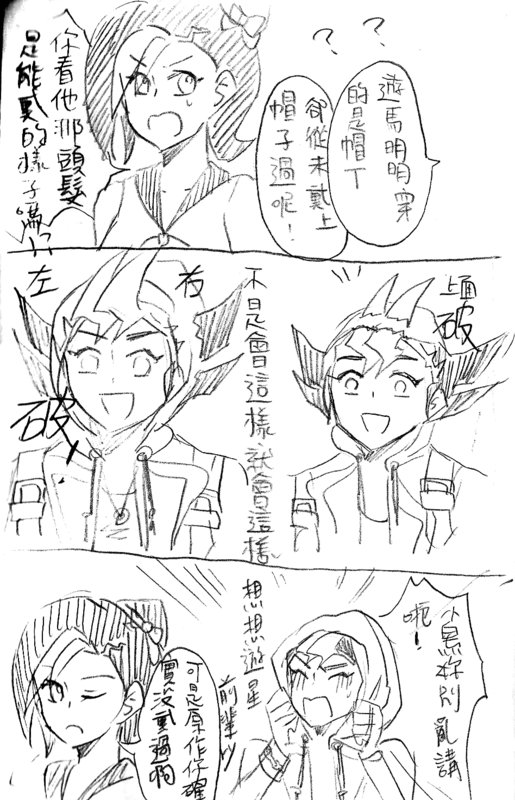 ？？
遊馬明明穿
的是帽T
卻從未戴上
帽子過呢！
你看他那頭髮
是能戴的樣子嗎
上面
破
不是會這樣就會這樣
右
左
破！
小鳥妳別亂講
呢！
想想遊星
前輩
可是原作你確
實沒戴過啊